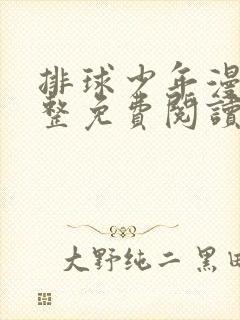 排球少年漫
整免費閱讀
大野纯二 黑田